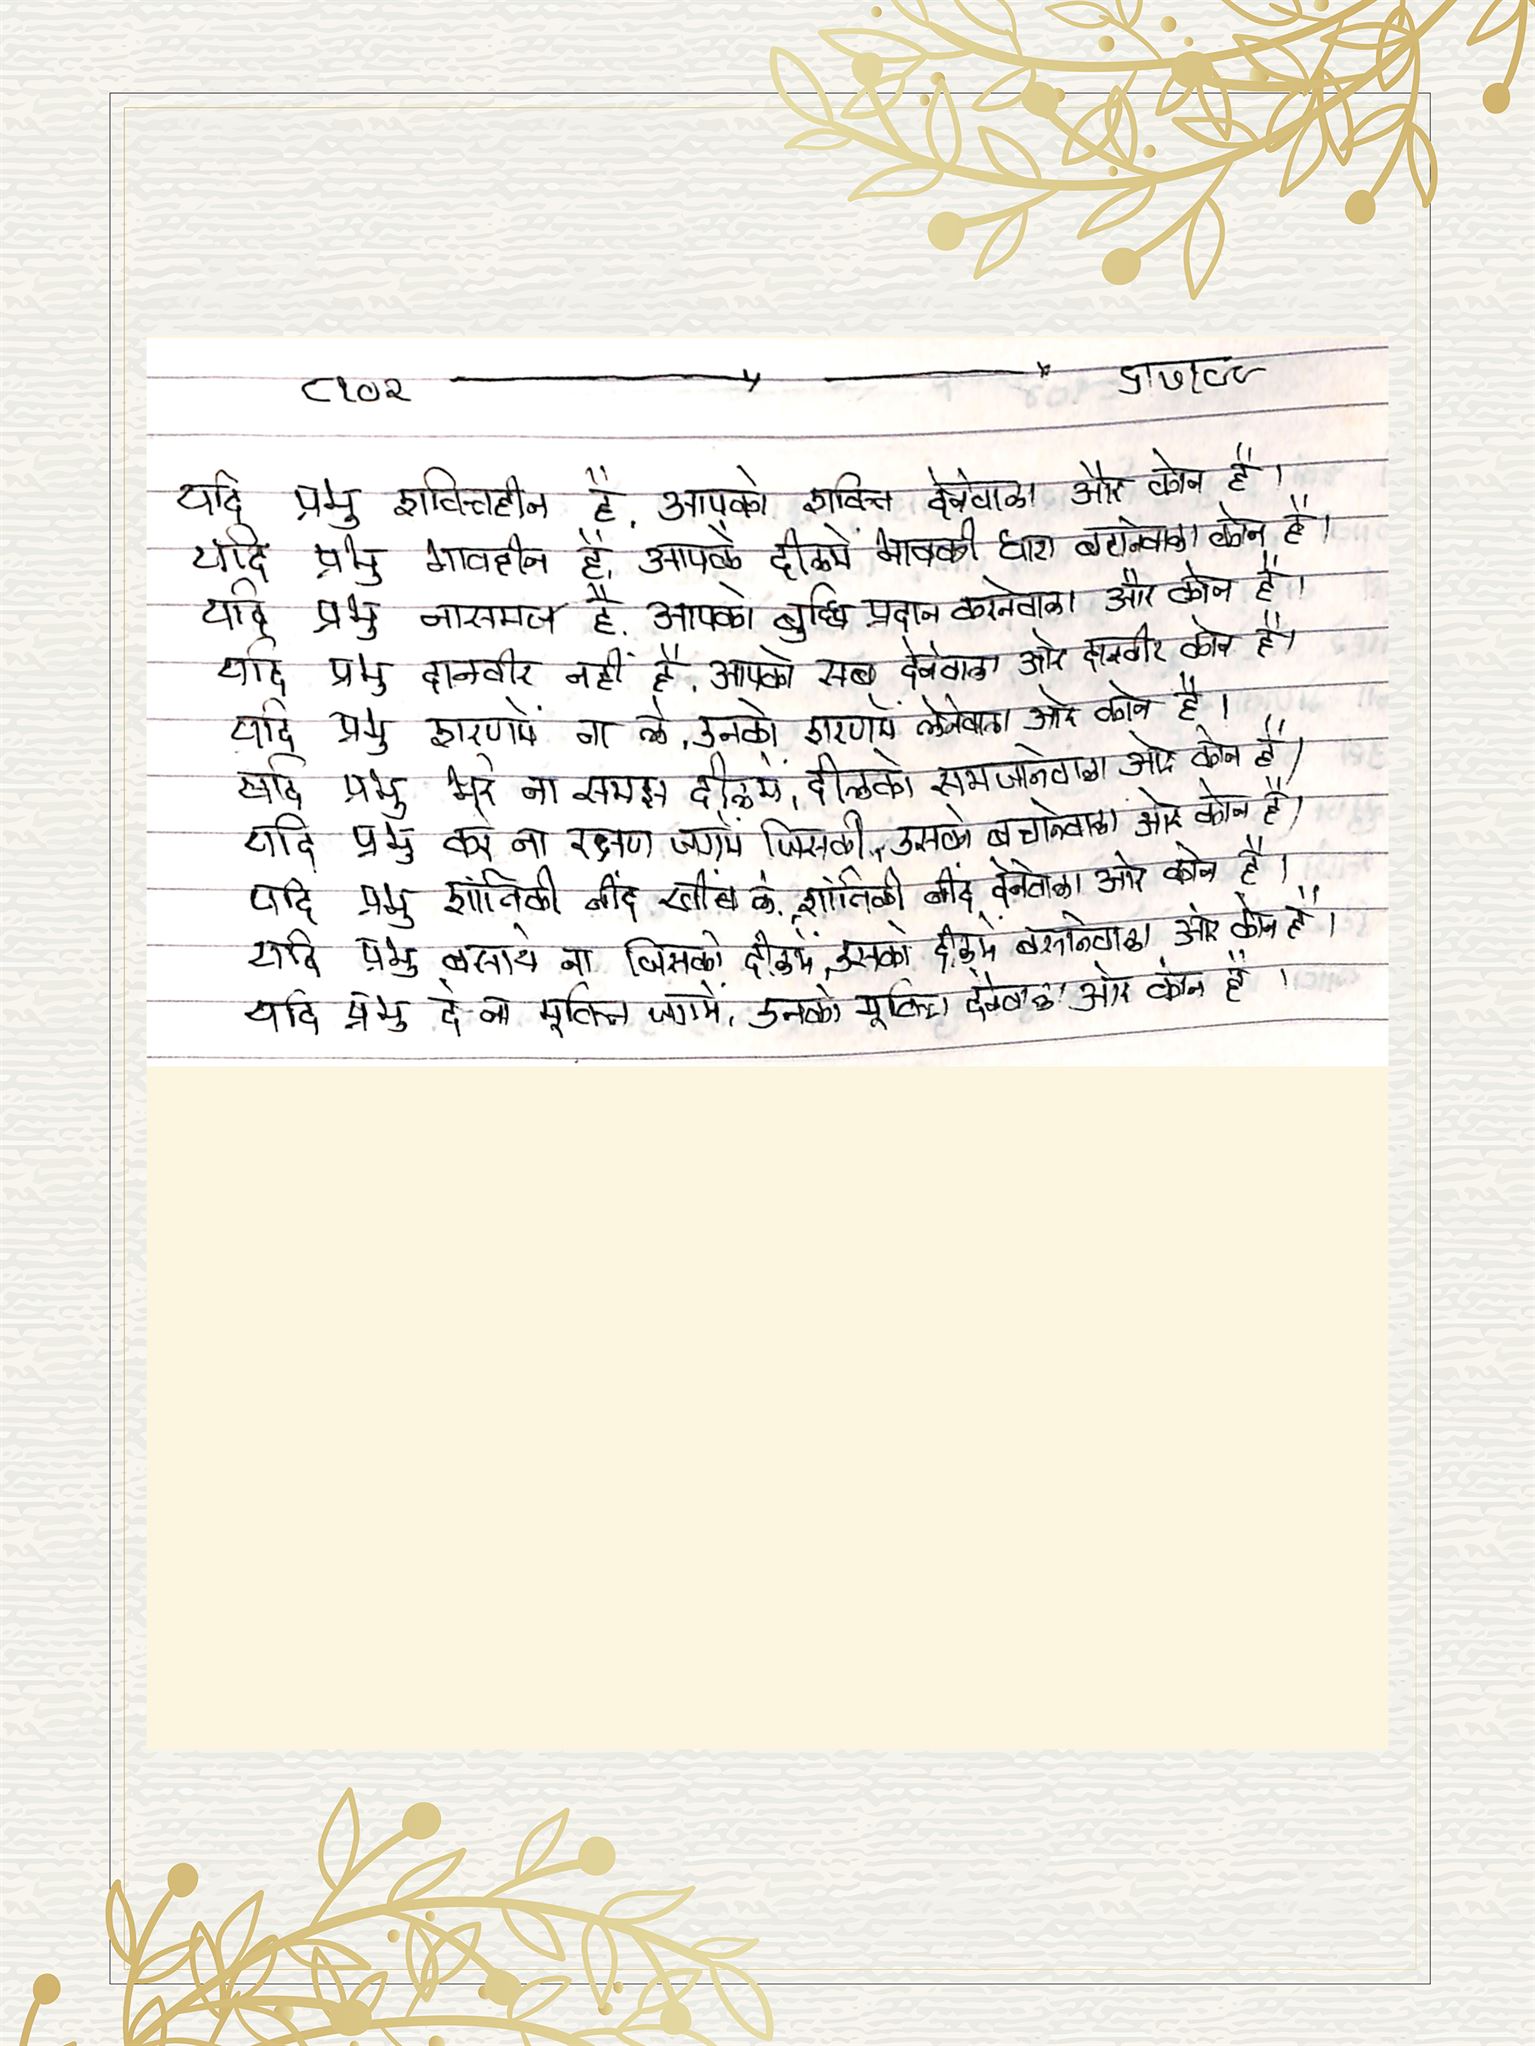 ८१०२ ५।७।८८
यदि प्रभु शक्तिहीन है, आपको शक्ति देनेवाला और कोन है ।
यदि प्रभु भावहीन है, आपके दीलमें भावकी धारा बहानेवाला कोन है ।
यदि प्रभु नासमज है, आपको बुद्धि प्रदान करनेवाला और कोन है ।
यदि प्रभु दानवीर नहीं है, आपको सब देनेवाला ओर दानवीर कोन है ।
यदि प्रभु शरणमें ना ले, उनको शरणमें लेनेवाला ओर कोन है ।
यदि प्रभु भरे ना समझ दीलमें, दीलको समजानेवाला ओर कोन है ।
यदि प्रभु करे ना रक्षण जगमें जिसकी, उसको बचानेवाला ओर कोन है ।
यदि प्रभु शांतिकी नींद खींच ले, शांतिकी नींद देनेवाला ओर कोन है ।
यदि प्रभु बसाये ना जिसको दीलमें, उसको दीलमें बसानेवाला ओर कोन है ।
यदि प्रभु दे ना मूक्ति जगमें, उनको मूक्ति देनेवाला ओर कोन है ।